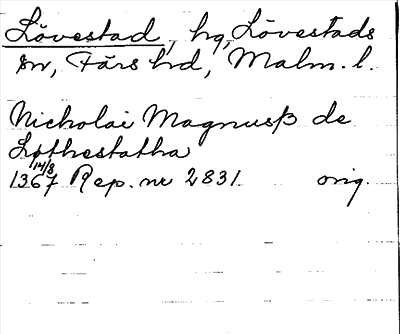 Lövestad, hg, Lövestads
sn, Färs hd, Malm. l.
Nicholai Magnusß de
Löthestatha
14/8
1367 Rep. nr 2831. orig.